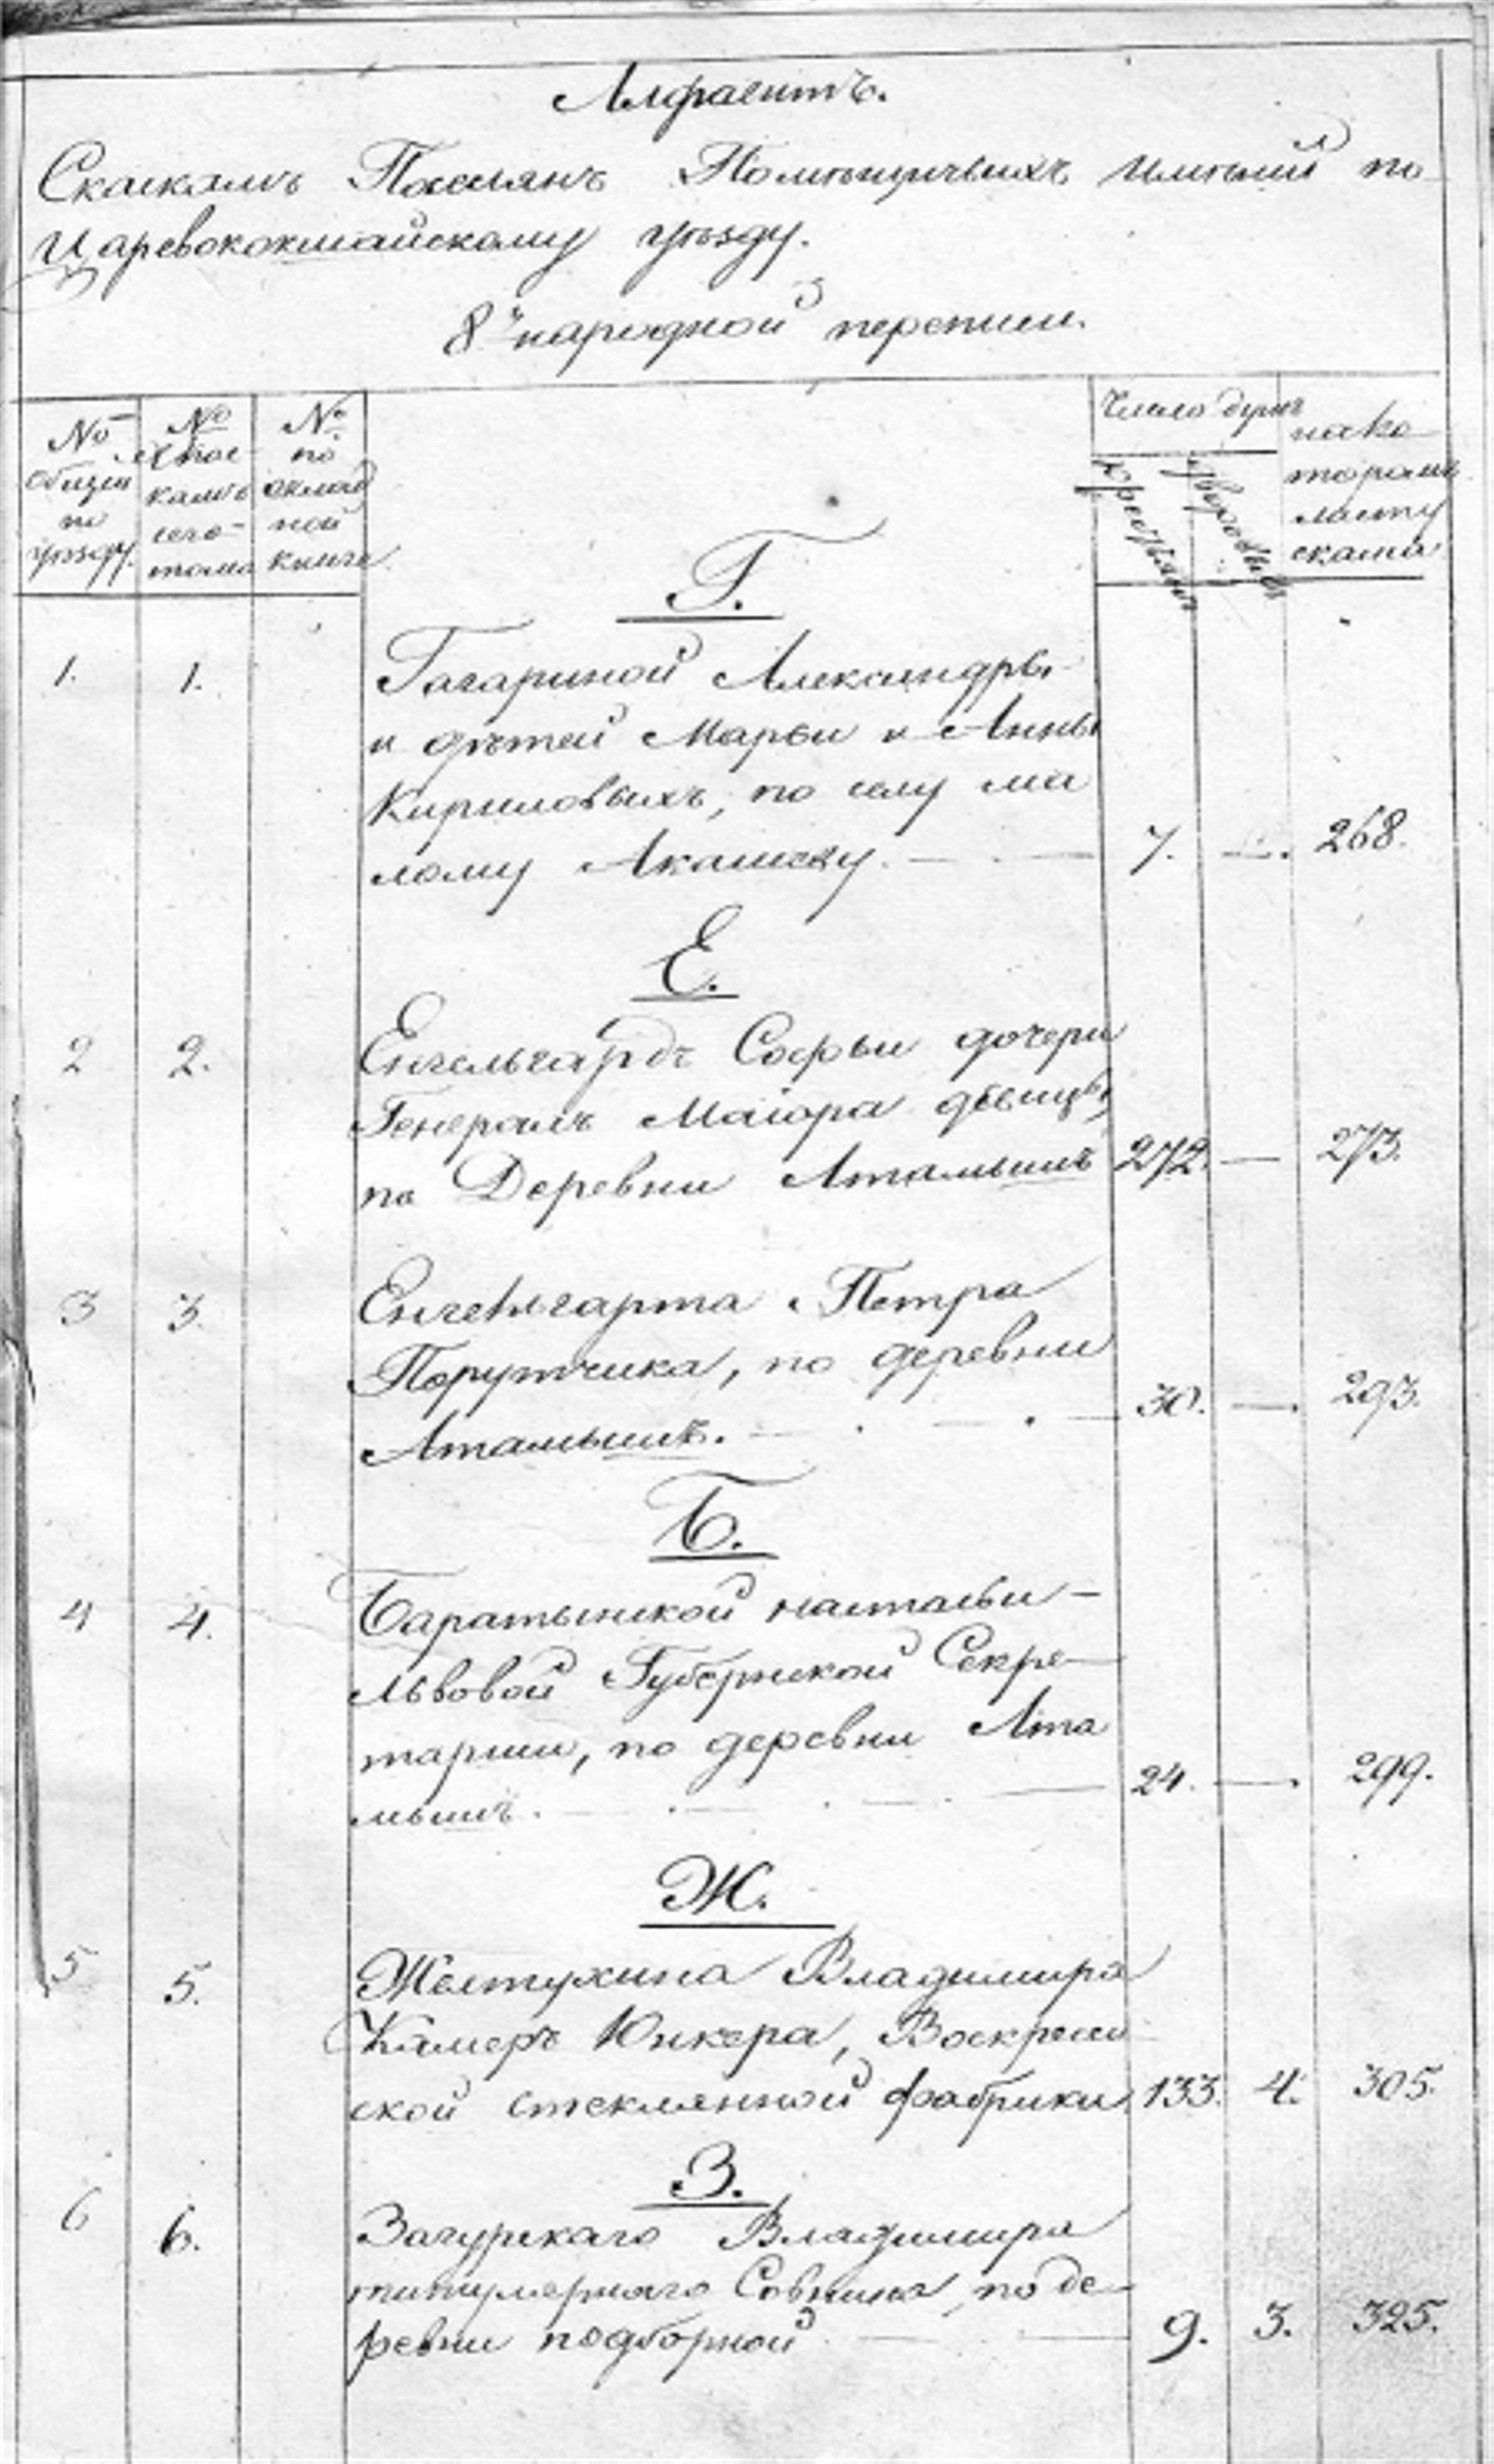 Алфавитъ.
Скаскамъ Поселянъ Помѣщичьихъ Имѣний по
Царевококшайскому уѣзду.
8й народной переписи.
№ общей по уѣзду.
№ по скаскамъ сего тома
№ по окладной книге
Число душъ
крестьянъ
дворовыхъ
на которомъ листу скаска
Г.
1. 1. Гагариной Александры
и дѣтей Марьи и Анны
Кириловыхъ, по селу ма
лому Акашеву. 7. — 268.
Е.
2 2. Енгельгардъ Софьи дочери
Генералъ Маiора дѣвицы,
по Деревни Атамышъ 272. — 273.
3 3. Енгельгарта Петра
Порутчика, по деревни
Атамышъ. 30. — 293.
Б.
4 4. Баратынской Настасьи
Львовой Губернской Секре
тарши, по деревни Ата
мышъ. 24. — 299.
Ж.
5 5. Желтухина Владимира
Камеръ Юнкера, Воскресен
ской стеклянной фабрики 133. 4. 305.
З.
6 6. Загурскаго Владимира
титулярнаго Совѣтника, по де
ревни подборной 9. 3. 325.